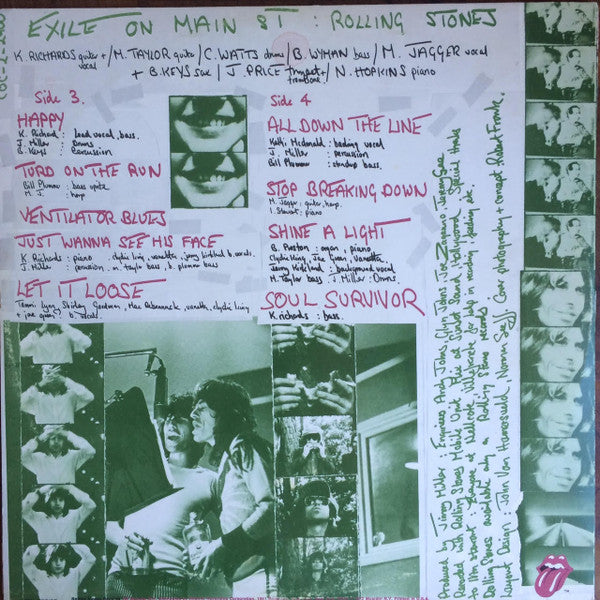 EXILE ON MAIN ST : ROLLING STONES
K. RICHARDS guitar + / M. TAYLOR guitar / C. WATTS drums / B. WYMAN bass / M. JAGGER vocal
vocal
+ B. KEYS sax / J. PRICE trumpet + / N. HOPKINS piano
trombone
Side 3.
HAPPY
K. Richard : lead vocal, bass.
J. Miller : Drums
B. Keys : Percussion
TURD ON THE RUN
Bill Plummer : bass uprite
M. J. : harp
VENTILATOR BLUES
JUST WANNA SEE HIS FACE
K. Richards : piano
J. Miller : percussion. m. taylor bass. b. plummer bass
LET IT LOOSE
Tammi Lynn, Shirley Goodman, Mac Rebennack, vanetta, clydie king
+ joe green : b. vocals.
Side 4
ALL DOWN THE LINE
Kathi Mcdonald : backing vocal
J. Miller : percussion
Bill Plummer : standup bass.
STOP BREAKING DOWN
M. Jagger : guitar, harp.
I. Stewart : piano
SHINE A LIGHT
B. Preston : organ, piano
Clydie King, Joe Green, Vanetta,
Jerry Kirkland : background vocal
M. Taylor bass J. Miller : Drums.
SOUL SURVIVOR
K. richards : bass.
Produced by Jimmy Miller : Engineers Andy Johns, Glyn Johns, Joe Zagarino, Jeremy Gee
Recorded with Rolling Stones Mobile Unit. Mix at Sunset Sound, Hollywood. Special thanks
Rolling Stones available only on Rolling Stones records
Layout Design : John Van Hamersveld, Norman Seeff Cover photography + concept Robert Frank.
TM